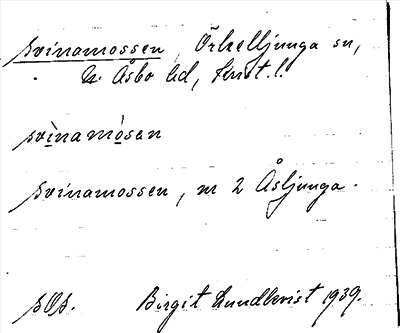 svinamossen, Örkelljunga sn,
N. Åsbo hd, Krist. l.
svìnamósen
svinamossen, nr 2 Åsljunga.
Birgit Lundkvist 1939.